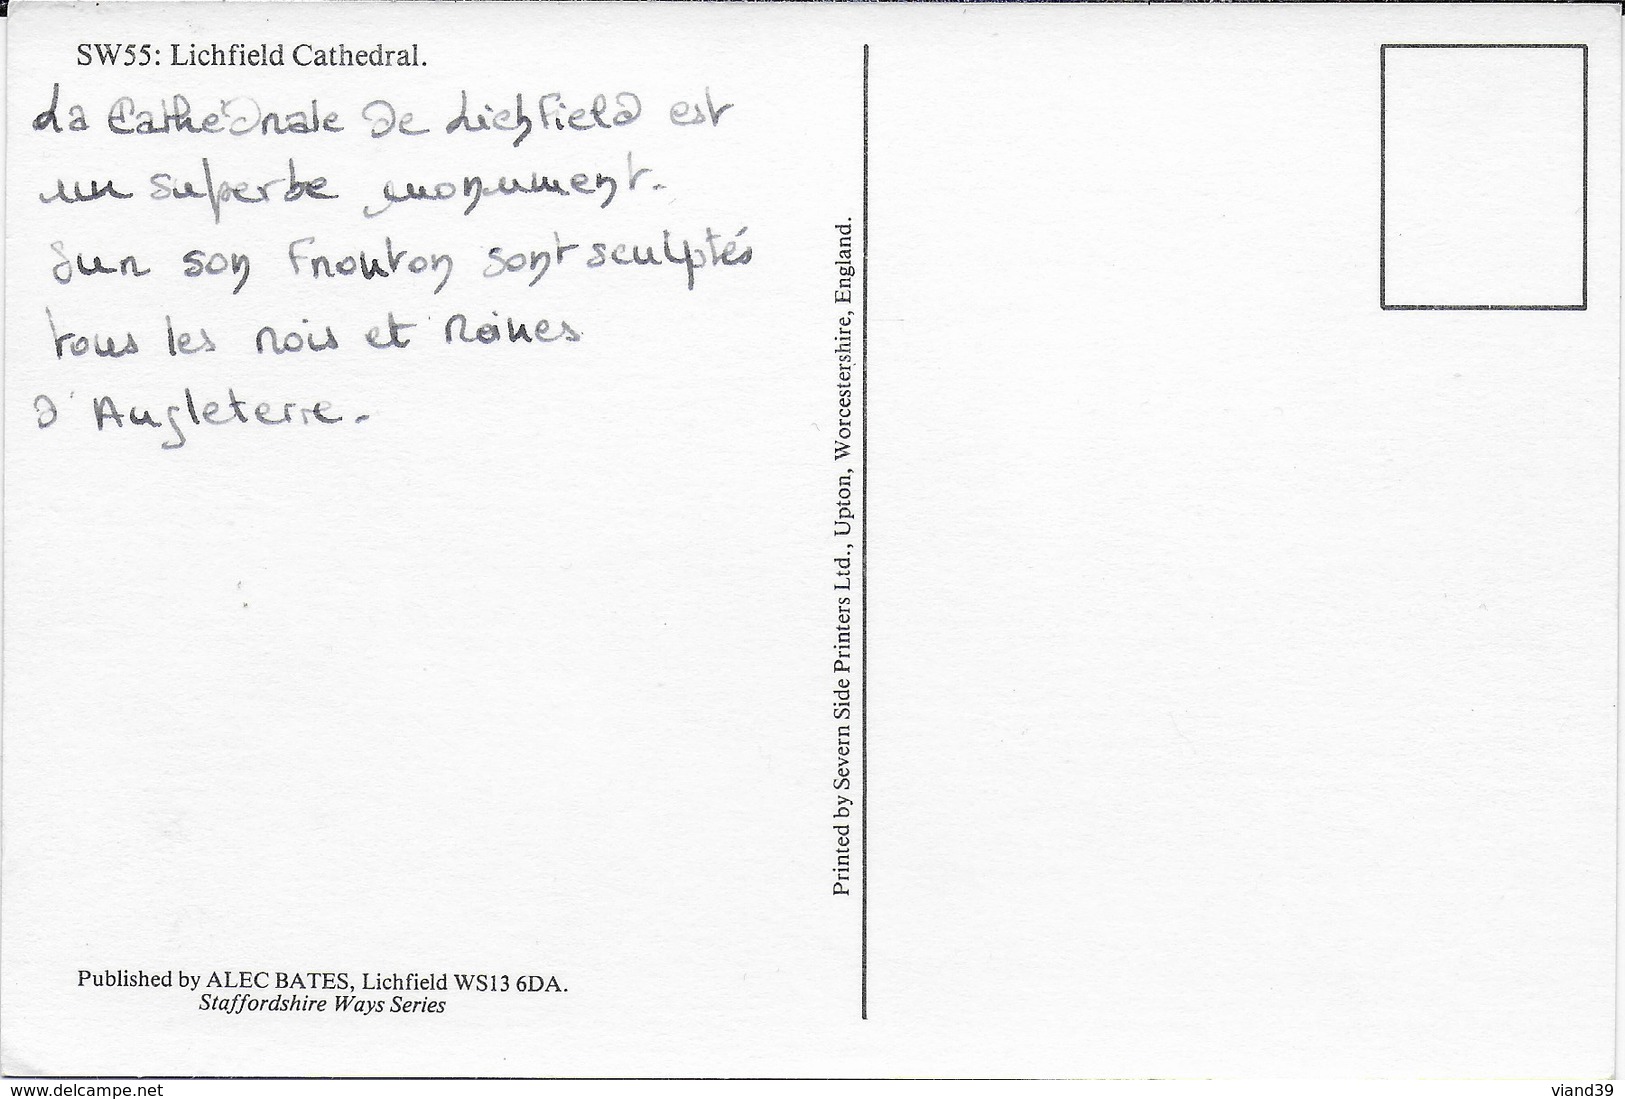 SW55: Lichfield Cathedral.
La Cathédrale de Lichfield est
un superbe monument.
Sur son Fronton sont sculptés
tous les rois et Reines
d'Angleterre.
Published by ALEC BATES, Lichfield WS13 6DA.
Staffordshire Ways Series
Printed by Severn Side Printers Ltd., Upton, Worcestershire, England.
www.delcampe.net
viand39